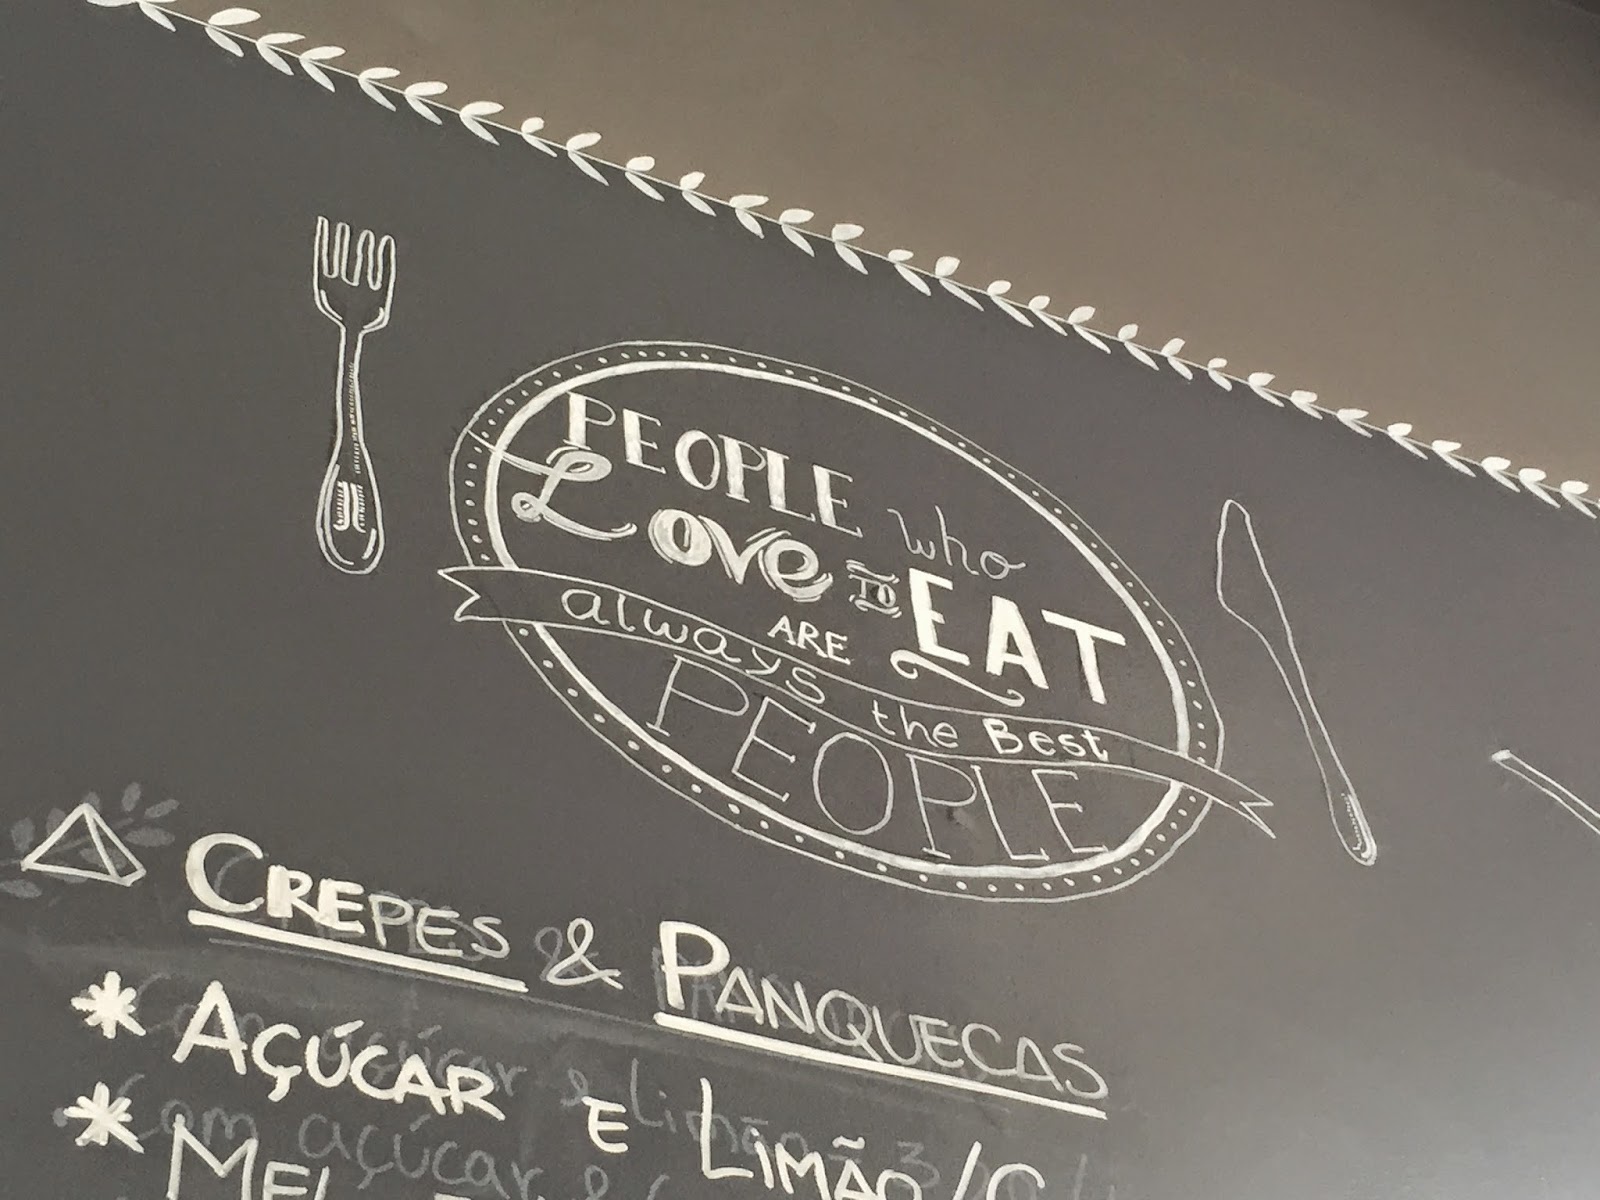 PEOPLE who
Love TO EAT
ARE
always the Best
PEOPLE
CREPES & PANQUECAS
* AÇÚCAR E LIMÃO/
* MEL